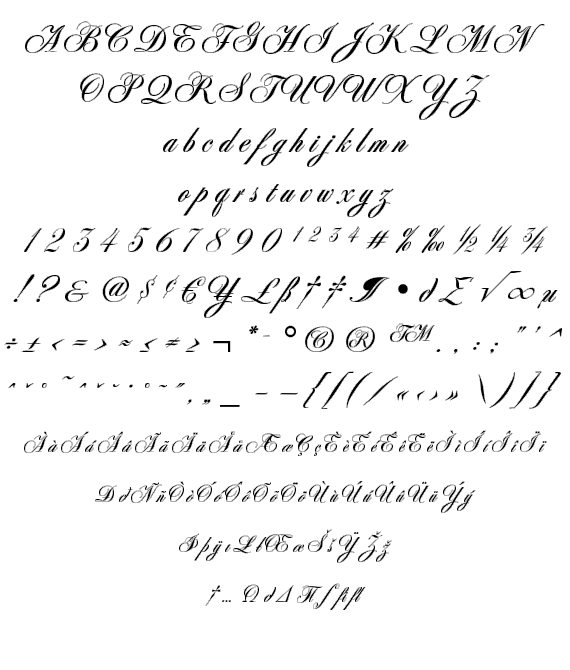 A B C D E F G H I J K L M N
O P Q R S T U V W X Y Z
a b c d e f g h i j k l m n
o p q r s t u v w x y z
1 2 3 4 5 6 7 8 9 0 ¹ ² ³ ⁴ # % ‰ ½ ¼ ¾
! ? & @ $ ¢ € ¥ £ ß † ‡ ¶ • ∂ Σ √ ∞ µ
÷ ± < = > ≈ ≤ ≠ ≥ ¬ * - ° © ® ™ . , : ; " ' ^
ˆ ˇ ° ~ ˆ ˇ ˘ · ° ~ ˝ . „ _ – — { [ ( / « ‹ › » \ ) ] }
À à Á á Â â Ã ã Ä ä Å å Æ æ Ç ç È è É é Ê ê Ë ë Ì ì Í í Î î Ï ï
Ð ð Ñ ñ Ò ò Ó ó Ô ô Õ õ Ö ö Ù ù Ú ú Û û Ü ü Ý ý
Þ þ ÿ ı Ł ł Œ œ Š š Ÿ Ž ž
† … Ω ∂ Δ Π ∫ fi fl